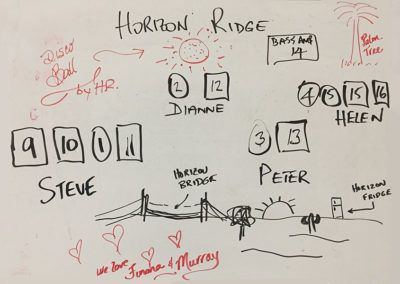 HORIZON RIDGE
Disco
Ball
by H.R.
BASS AMP
14
Palm
Tree
2 12
DIANNE
4 5 15 16
HELEN
9 10 1 11
STEVE
3 13
PETER
HORIZON
BRIDGE
HORIZON
FRIDGE
We love
& Murray